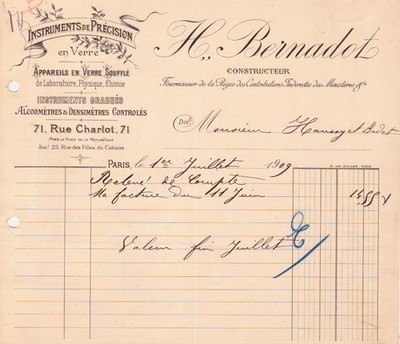 INSTRUMENTS DE PRÉCISION
en Verre
APPAREILS EN VERRE SOUFFLÉ
de Laboratoire, Physique, Chimie
INSTRUMENTS GRADUÉS
ALCOOMÈTRES & DENSIMÈTRES CONTRÔLÉS
71, Rue Charlot, 71
PRÈS LA PLACE DE LA RÉPUBLIQUE
Anct 23, Rue des Filles du Calvaire
H. Bernadot
CONSTRUCTEUR
Fournisseur de la Régie des Contributions Indirectes des Ministères &a
Doit
Monsieur
PARIS, le 1er Juillet 1909
Relevé de Compte
Ma facture du 11 Juin 14 55
Valeur fin Juillet